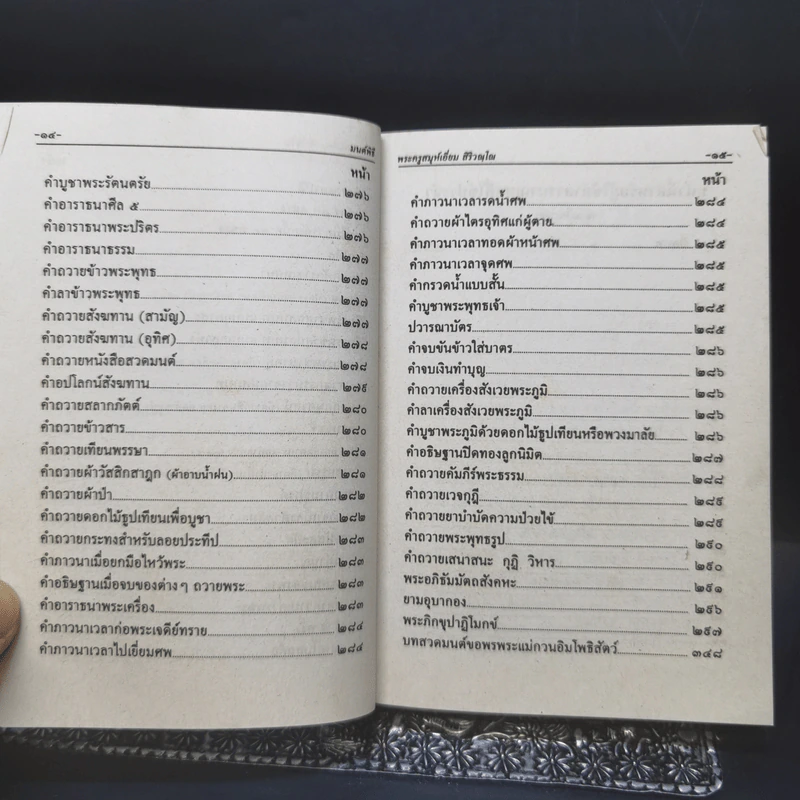 -๑๔-
มนต์พิธี
หน้า
คำบูชาพระรัตนตรัย ๒๗๖
คำอาราธนาศีล ๕ ๒๗๖
คำอาราธนาพระปริตร ๒๗๖
คำอาราธนาธรรม ๒๗๗
คำถวายข้าวพระพุทธ ๒๗๗
คำลาข้าวพระพุทธ ๒๗๗
คำถวายสังฆทาน (สามัญ) ๒๗๗
คำถวายสังฆทาน (อุทิศ) ๒๗๘
คำถวายหนังสือสวดมนต์ ๒๗๘
คำอปโลกน์สังฆทาน ๒๗๙
คำถวายสลากภัตต์ ๒๘๐
คำถวายข้าวสาร ๒๘๐
คำถวายเทียนพรรษา ๒๘๑
คำถวายผ้าวัสสิกสาฎก (ผ้าอาบน้ำฝน) ๒๘๑
คำถวายผ้าป่า ๒๘๒
คำถวายดอกไม้ธูปเทียนเพื่อบูชา ๒๘๒
คำถวายกระทงสำหรับลอยประทีป ๒๘๓
คำภาวนาเมื่อยกมือไหว้พระ ๒๘๓
คำอธิษฐานเมื่อจบของต่างๆ ถวายพระ ๒๘๓
คำอาราธนาพระเครื่อง ๒๘๓
คำภาวนาเวลาก่อพระเจดีย์ทราย ๒๘๔
คำภาวนาเวลาไปเยี่ยมศพ ๒๘๔
พระครูสมุห์เอี่ยม สิริวณฺโณ
-๑๕-
หน้า
คำภาวนาเวลารดน้ำศพ ๒๘๔
คำถวายผ้าไตรอุทิศแก่ผู้ตาย ๒๘๔
คำภาวนาเวลาทอดผ้าหน้าศพ ๒๘๕
คำภาวนาเวลาจุดศพ ๒๘๕
คำกรวดน้ำแบบสั้น ๒๘๕
คำบูชาพระพุทธเจ้า ๒๘๕
ปวารณาบัตร ๒๘๕
คำจบขันข้าวใส่บาตร ๒๘๖
คำจบเงินทำบุญ ๒๘๖
คำถวายเครื่องสังเวยพระภูมิ ๒๘๖
คำลาเครื่องสังเวยพระภูมิ ๒๘๖
คำบูชาพระภูมิด้วยดอกไม้ธูปเทียนหรือพวงมาลัย ๒๘๖
คำอธิษฐานปิดทองลูกนิมิต ๒๘๗
คำถวายคัมภีร์พระธรรม ๒๘๘
คำถวายเวจกุฎี ๒๘๙
คำถวายยาบำบัดความป่วยไข้ ๒๘๙
คำถวายพระพุทธรูป ๒๙๐
คำถวายเสนาสนะ กุฏิ วิหาร ๒๙๐
พระอภิธัมมัตถสังคหะ ๒๙๑
ยามอุบากอง ๒๙๖
พระภิกขุปาฏิโมกข์ ๒๙๗
บทสวดมนต์ขอพรพระแม่กวนอิมโพธิสัตว์ ๓๔๘